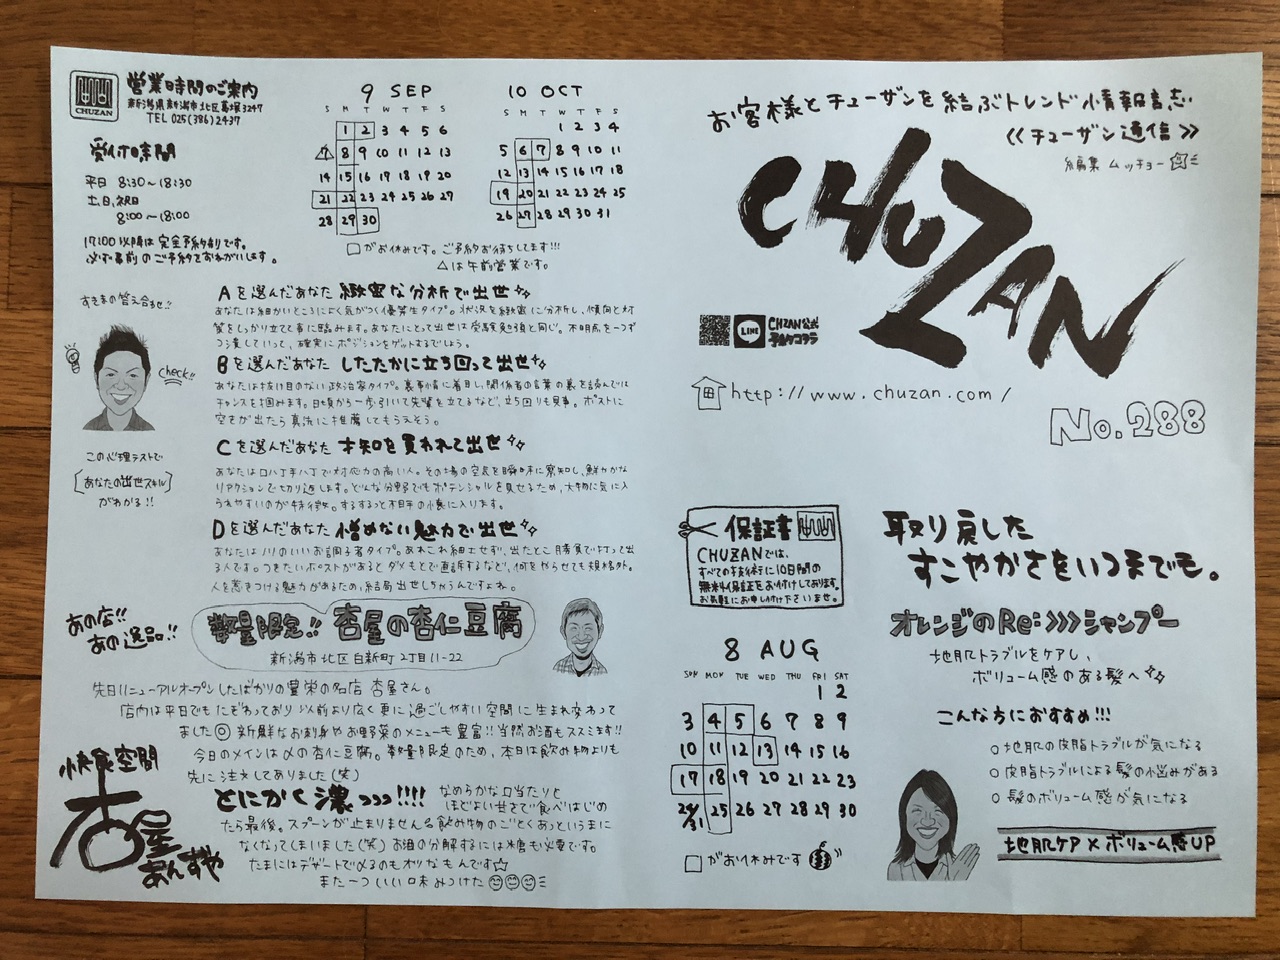 CHUZAN
営業時間のご案内
新潟県新潟市北区葛塚3247
TEL 025(386)2437
受付時間
平日 8:30～18:30
土、日、祝日
8:00～18:00
17:00以降は完全予約制です。
必ず事前のご予約でおねがいします。
9 SEP
S M T W T F S
1 2 3 4 5 6
7 8 9 10 11 12 13
14 15 16 17 18 19 20
21 22 23 24 25 26 27
28 29 30
10 OCT
S M T W T F S
1 2 3 4
5 6 7 8 9 10 11
12 13 14 15 16 17 18
19 20 21 22 23 24 25
26 27 28 29 30 31
□がお休みです。ご予約お待ちしてます!!!
△は午前営業です。
すきまの答え合せ!!
check!!
この心理テストで
あなたの出世スキル
がわかる!!
Aを選んだあなた 緻密な分析で出世
あなたは細かいところによく気がつく優等生タイプ。状況を緻密に分析し、傾向と対
策をしっかり立て事に臨みます。あなたにとって出世は受験勉強と同じ。不明点を一つず
つ潰していって、確実にポジションをゲットするでしょう。
Bを選んだあなた したたかに立ち回って出世
あなたは抜け目のない政治家タイプ。裏事情に着目し、関係者の言葉の裏を読んでは
チャンスを掴みます。日頃から一歩引いて先輩を立てるなど、立ち回りも見事。ポストに
空きが出たら真先に推薦してもらえそう。
Cを選んだあなた 才知を買われて出世
あなたは口八丁手八丁で対応力の高い人。その場の空気を瞬時に察知し、鮮やかな
リアクションで切り返します。どんな分野でもポテンシャルを見せるため、大物に気に入
られやすいのが特徴。するするっと相手の懐に入ります。
Dを選んだあなた 憎めない魅力で出世
あなたはノリのいいお調子者タイプ。あれこれ細工せず、出たとこ勝負で打って出
る人です。つきたいポストがあるとダメもとで直訴するなど、何をやらせても規格外。
人を惹きつける魅力があるため、結局出世しちゃうんですよね。
あの店!!
あの逸品!!
数量限定!! 杏屋の杏仁豆腐
新潟市北区白新町2丁目11-22
先日リニューアルオープンしたばかりの豊栄の名店 杏屋さん。
店内は平日でもにぎわっており 以前より広く更に過ごしやすい空間に生まれ変わって
ました◎ 新鮮なお刺身やお野菜のメニューも豊富!! 当然お酒もススミます!!
今日のメインは〆の杏仁豆腐。数量限定のため、本日は飲み物よりも
先に注文してありました(笑)
とにかく濃っっっ!!!! なめらかな口当たりと
ほどよい甘さで食べはじめ
たら最後。スプーンが止まりません 飲み物のごとくあっというまに
なくなってしまいました(笑) お酒の分解するには糖も必要です。
たまにはデザートで〆るのもオツなもんです☆
また一つ いい口味みつけた
快食空間
杏屋
あんずや
お客様とチューザンを結ぶトレンド情報誌
《チューザン通信》
編集 ムッチョー
CHUZAN
LINE
CHZAN公式
予約はコチラ
http://www.chuzan.com/
No.288
保証書
CHUZANでは、
すべての技術に10日間の
無料保証をお付けしております。
お気軽にお申し付け下さいませ。
8 AUG
SUN MON TUE WED THU FRI SAT
1 2
3 4 5 6 7 8 9
10 11 12 13 14 15 16
17 18 19 20 21 22 23
24/31 25 26 27 28 29 30
□がお休みです
取り戻した
すこやかさをいつまでも。
オレンジのRe:>>>シャンプー
地肌トラブルをケアし、
ボリューム感のある髪へ
こんな方におすすめ!!!
○地肌の皮脂トラブルが気になる
○皮脂トラブルによる髪の悩みがある
○髪のボリューム感が気になる
地肌ケア×ボリューム感UP